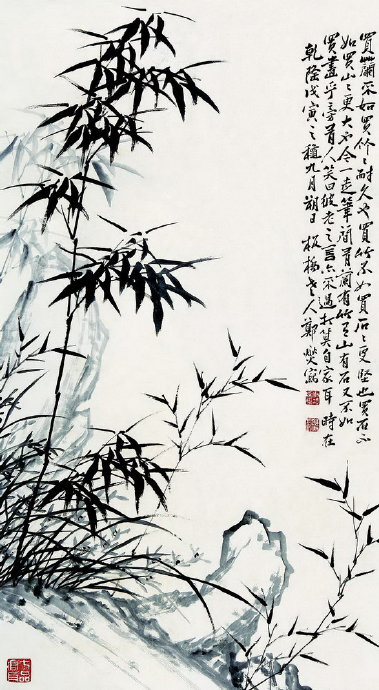 買蘭不如買竹之耐久也買竹不如買石之更堅也買石不
如買山之更大也今一走筆蘭有蘭有竹有山有石又不如
買畫乎旁有人笑曰彼老之言亦不過打算自家耳時在
乾隆戊寅之種九月朔日板橋老人鄭燮寫